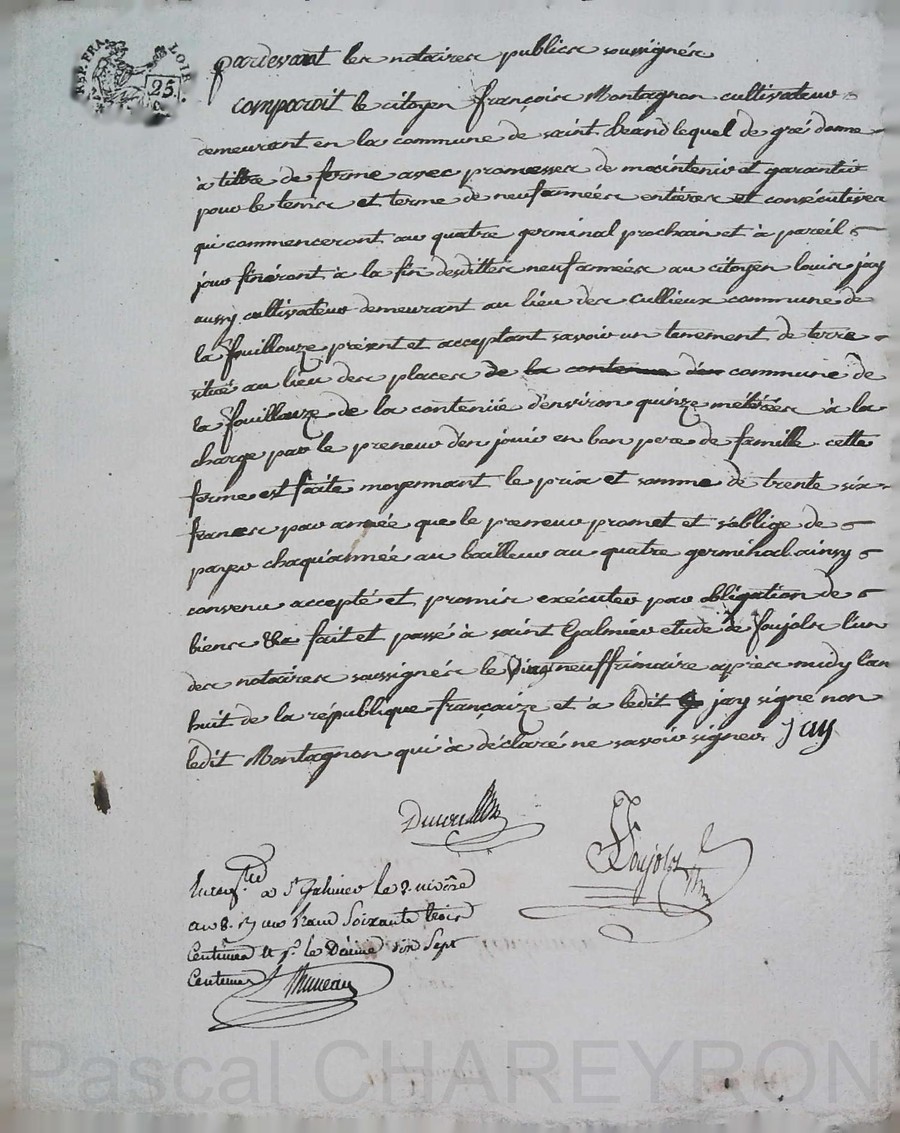 REP. FRA. LOIR
25.
pardevant les notaires publics soussignés
comparoit le citoyen françois Montagnon cultivateur
demeurant en la commune de saint heand lequel de gré donne
à titre de ferme avec promesses de maintenir et garantir
pour le tems et terme de neuf années entières et consécutives
qui commenceront au quatre germinal prochain et à pareil
jour finiront à la fin desdittes neuf années au citoyen louis jay
aussy cultivateur demeurant au lieu des cullieux commune de
la fouillouze présent et acceptant savoir un tenement de terre
situé au lieu des places de la contenue d'en commune de
la fouillouze de la contenüe d'environ quinze métérées à la
charge par le preneur d'en jouir en bon pere de famille cette
ferme est faite moyennant le prix et somme de trente six
francs par année que le preneur promet et s'oblige de
payer chaqu'année au bailleur au quatre germinal. ainsy
convenu accepté et promis exécuter par obligation de
biens &a fait et passé à saint Galmier etude de foujols l'un
des notaires soussignés le vingt neuf frimaire après midy l'an
huit de la république françaize et a ledit jay signé non
ledit Montagnon qui à déclaré ne savoir signer. Jay
foujols
a St Galmier le 2. nivôse
an 8. un franc Soixante trois
Centimes le Décime Sept
Centimes
Pascal CHAREYRON